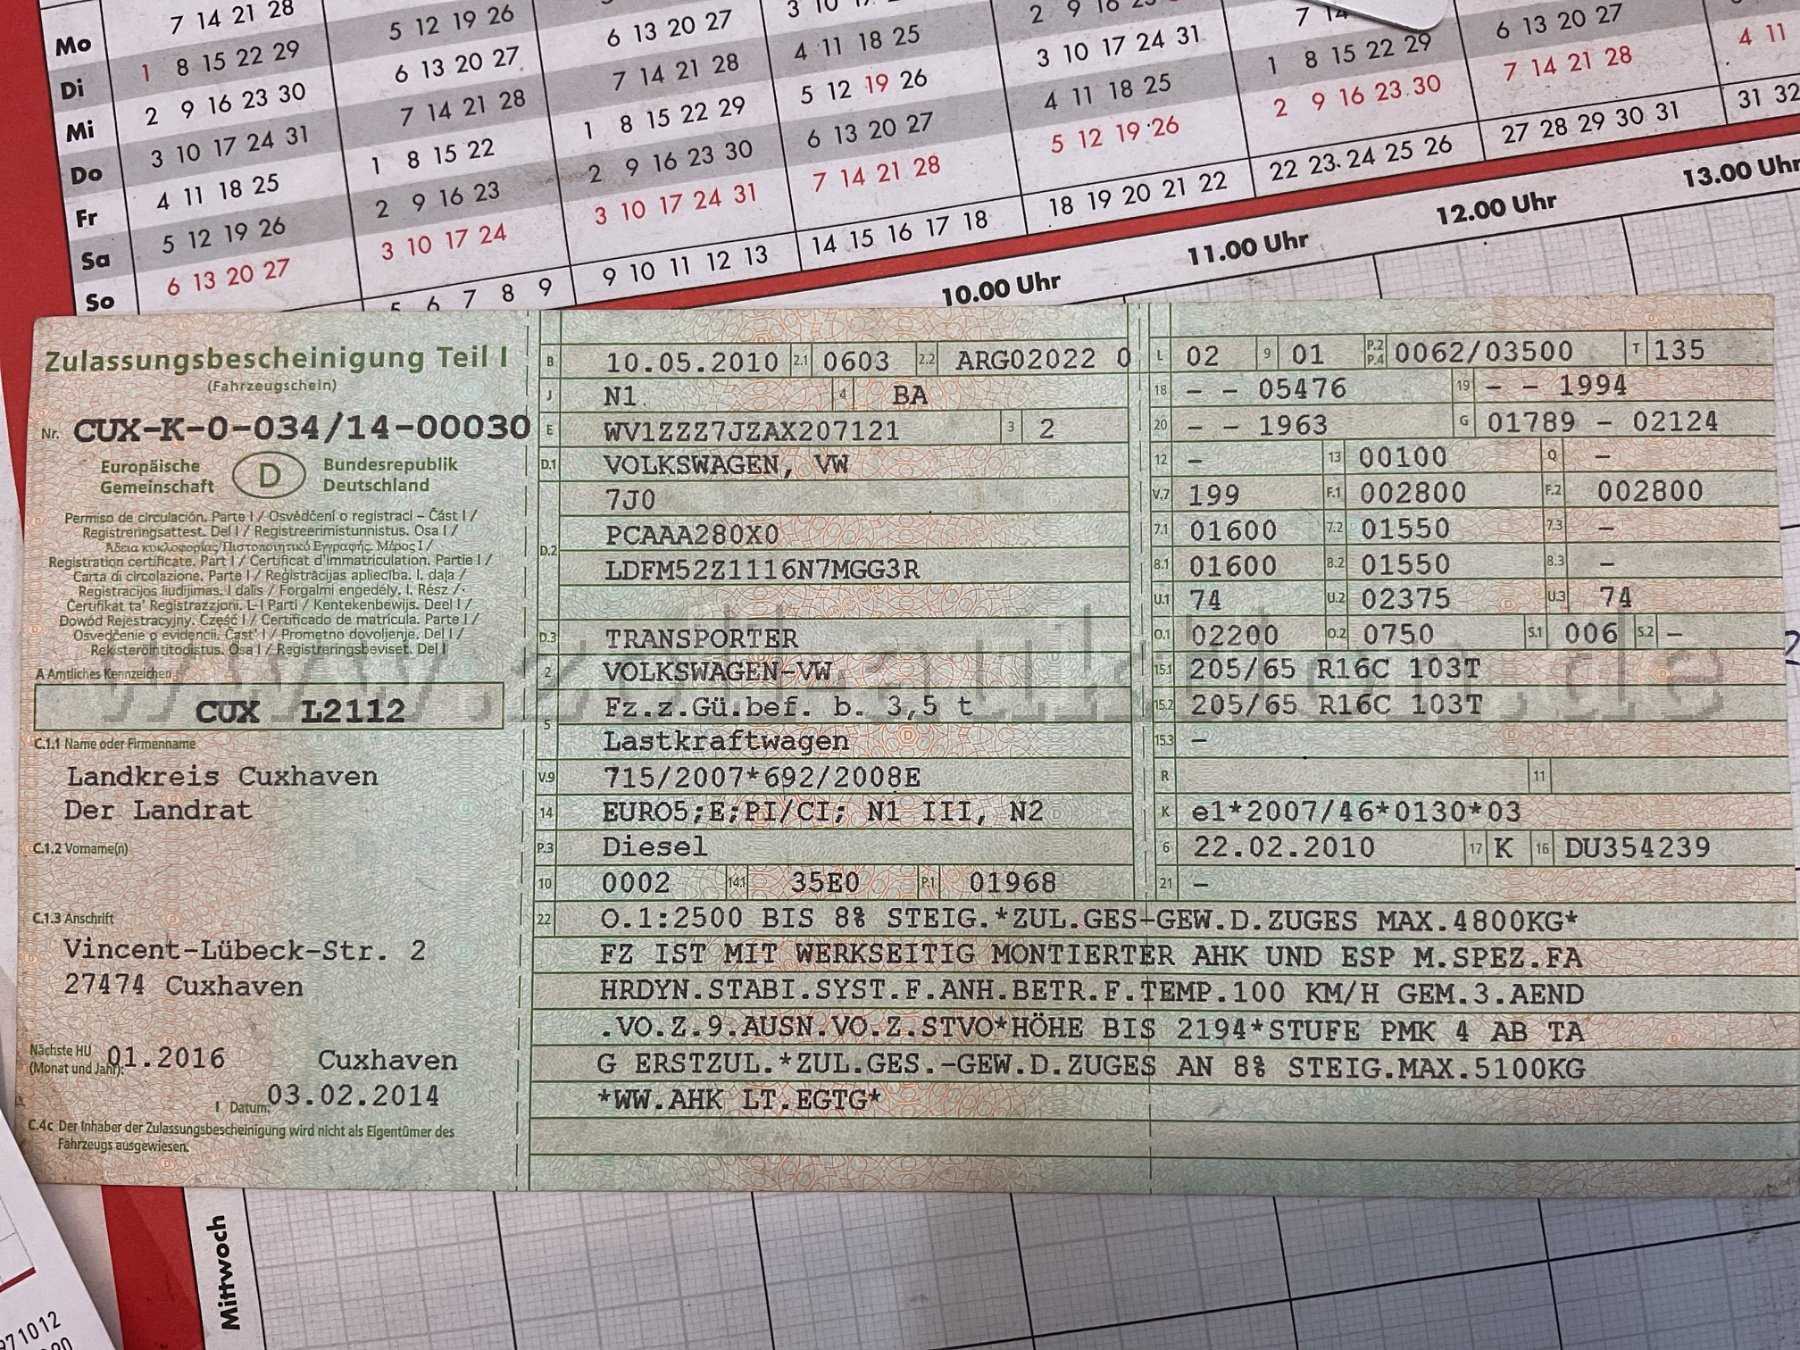 Mo 7 14 21 28 5 12 19 26 6 13 20 27 3 10 2 9 16 7 14 6 13 20 27
Di 1 8 15 22 29 6 13 20 27 7 14 21 28 4 11 18 25 3 10 17 24 31 1 8 15 22 29 7 14 21 28 4 11
Mi 2 9 16 23 30 7 14 21 28 1 8 15 22 29 5 12 19 26 4 11 18 25 2 9 16 23 30
Do 3 10 17 24 31 1 8 15 22 2 9 16 23 30 6 13 20 27 5 12 19 26
Fr 4 11 18 25 2 9 16 23 3 10 17 24 31 7 14 21 28
Sa 5 12 19 26 3 10 17 24
So 6 13 20 27
5 6 7 8 9 9 10 11 12 13 14 15 16 17 18 18 19 20 21 22 22 23 24 25 26 27 28 29 30 31 31 32
10.00 Uhr 11.00 Uhr 12.00 Uhr 13.00 Uhr
Zulassungsbescheinigung Teil I
(Fahrzeugschein)
Nr. CUX-K-0-034/14-00030
Europäische Gemeinschaft D Bundesrepublik Deutschland
Permiso de circulación. Parte I / Osvědčení o registraci – Část I /
Registreringsattest. Del I / Registreerimistunnistus. Osa I /
Άδεια κυκλοφορίας/Πιστοποιητικό Εγγραφής. Μέρος I /
Registration certificate. Part I / Certificat d'immatriculation. Partie I /
Carta di circolazione. Parte I / Reģistrācijas apliecība. I. daļa /
Registracijos liudijimas. I dalis / Forgalmi engedély. I. Rész /
Ċertifikat ta' Reġistrazzjoni. L-I Parti / Kentekenbewijs. Deel I /
Dowód Rejestracyjny. Część I / Certificado de matrícula. Parte I /
Osvedčenie o evidencii. Časť I / Prometno dovoljenje. Del I /
Rekisteröintitodistus. Osa I / Registreringsbeviset. Del I
A Amtliches Kennzeichen
CUX L2112
C.1.1 Name oder Firmenname
Landkreis Cuxhaven
Der Landrat
C.1.2 Vorname(n)
C.1.3 Anschrift
Vincent-Lübeck-Str. 2
27474 Cuxhaven
Nächste HU (Monat und Jahr): 01.2016 Cuxhaven
I Datum: 03.02.2014
C.4c Der Inhaber der Zulassungsbescheinigung wird nicht als Eigentümer des
Fahrzeugs ausgewiesen.
B 10.05.2010 2.1 0603 2.2 ARG02022 0
J N1 4 BA
E WV1ZZZ7JZAX207121 3 2
D.1 VOLKSWAGEN, VW
7J0
D.2 PCAAA280X0
LDFM52Z1116N7MGG3R
D.3 TRANSPORTER
2 VOLKSWAGEN-VW
5 Fz.z.Gü.bef. b. 3,5 t
Lastkraftwagen
V.9 715/2007*692/2008E
14 EURO5;E;PI/CI; N1 III, N2
P.3 Diesel
10 0002 14.1 35E0 P.1 01968
L 02 9 01 P.2 P.4 0062/03500 T 135
18 - - 05476 19 - - 1994
20 - - 1963 G 01789 - 02124
12 - 13 00100 Q -
V.7 199 F.1 002800 F.2 002800
7.1 01600 7.2 01550 7.3 -
8.1 01600 8.2 01550 8.3 -
U.1 74 U.2 02375 U.3 74
O.1 02200 O.2 0750 S.1 006 S.2 -
15.1 205/65 R16C 103T
15.2 205/65 R16C 103T
15.3 -
R 11
K e1*2007/46*0130*03
6 22.02.2010 17 K 16 DU354239
21 -
22 O.1:2500 BIS 8% STEIG.*ZUL.GES-GEW.D.ZUGES MAX.4800KG*
FZ IST MIT WERKSEITIG MONTIERTER AHK UND ESP M.SPEZ.FA
HRDYN.STABI.SYST.F.ANH.BETR.F.TEMP.100 KM/H GEM.3.AEND
.VO.Z.9.AUSN.VO.Z.STVO*HÖHE BIS 2194*STUFE PMK 4 AB TA
G ERSTZUL.*ZUL.GES.-GEW.D.ZUGES AN 8% STEIG.MAX.5100KG
*WW.AHK LT.EGTG*
Mittwoch